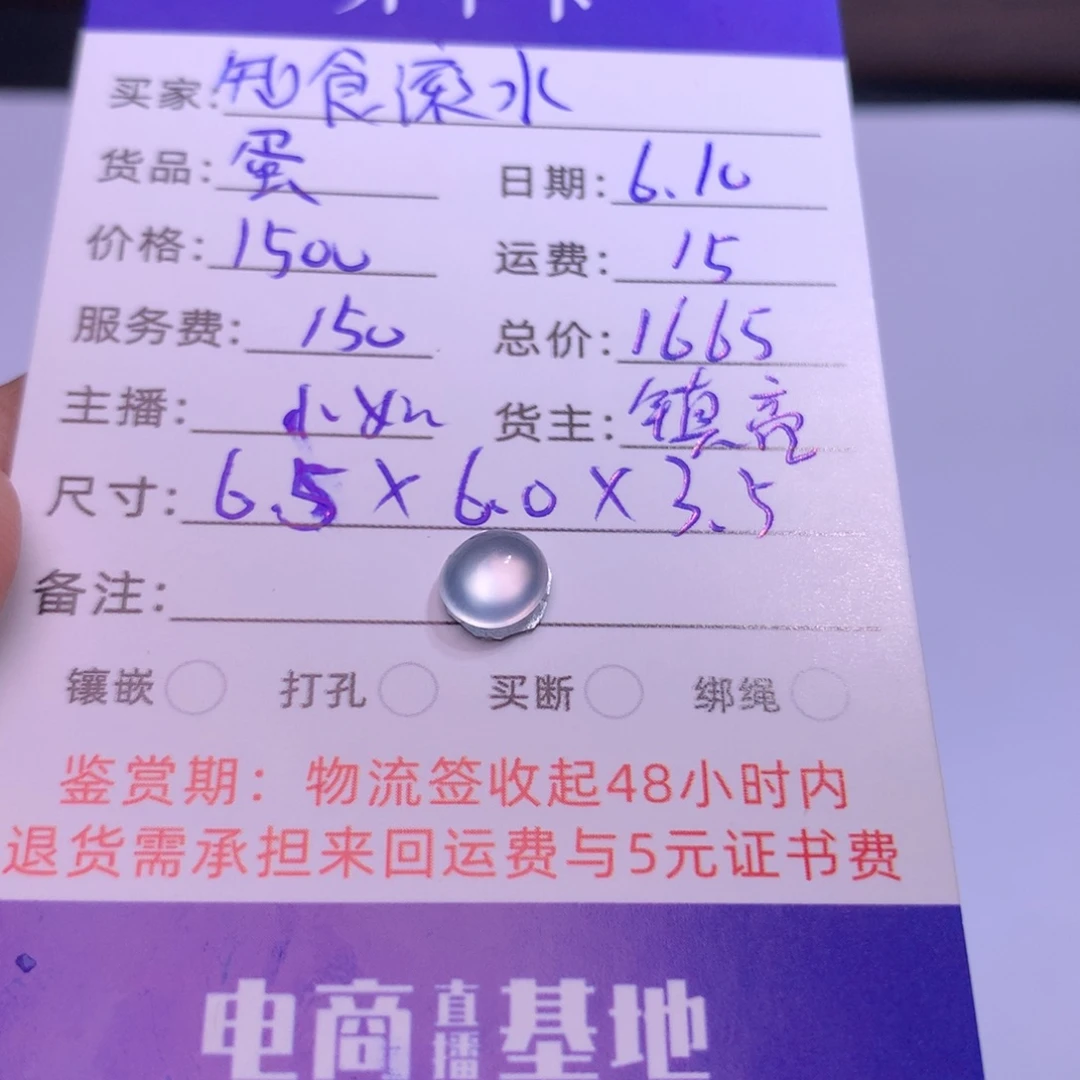 买家:知食滚水
货品:蛋 日期:6.10
价格:1500 运费:15
服务费:150 总价:1665
主播: 货主:镇亮
尺寸:6.5×6.0×3.5
备注:
镶嵌 打孔 买断 绑绳
鉴赏期:物流签收起48小时内
退货需承担来回运费与5元证书费
电商直播基地